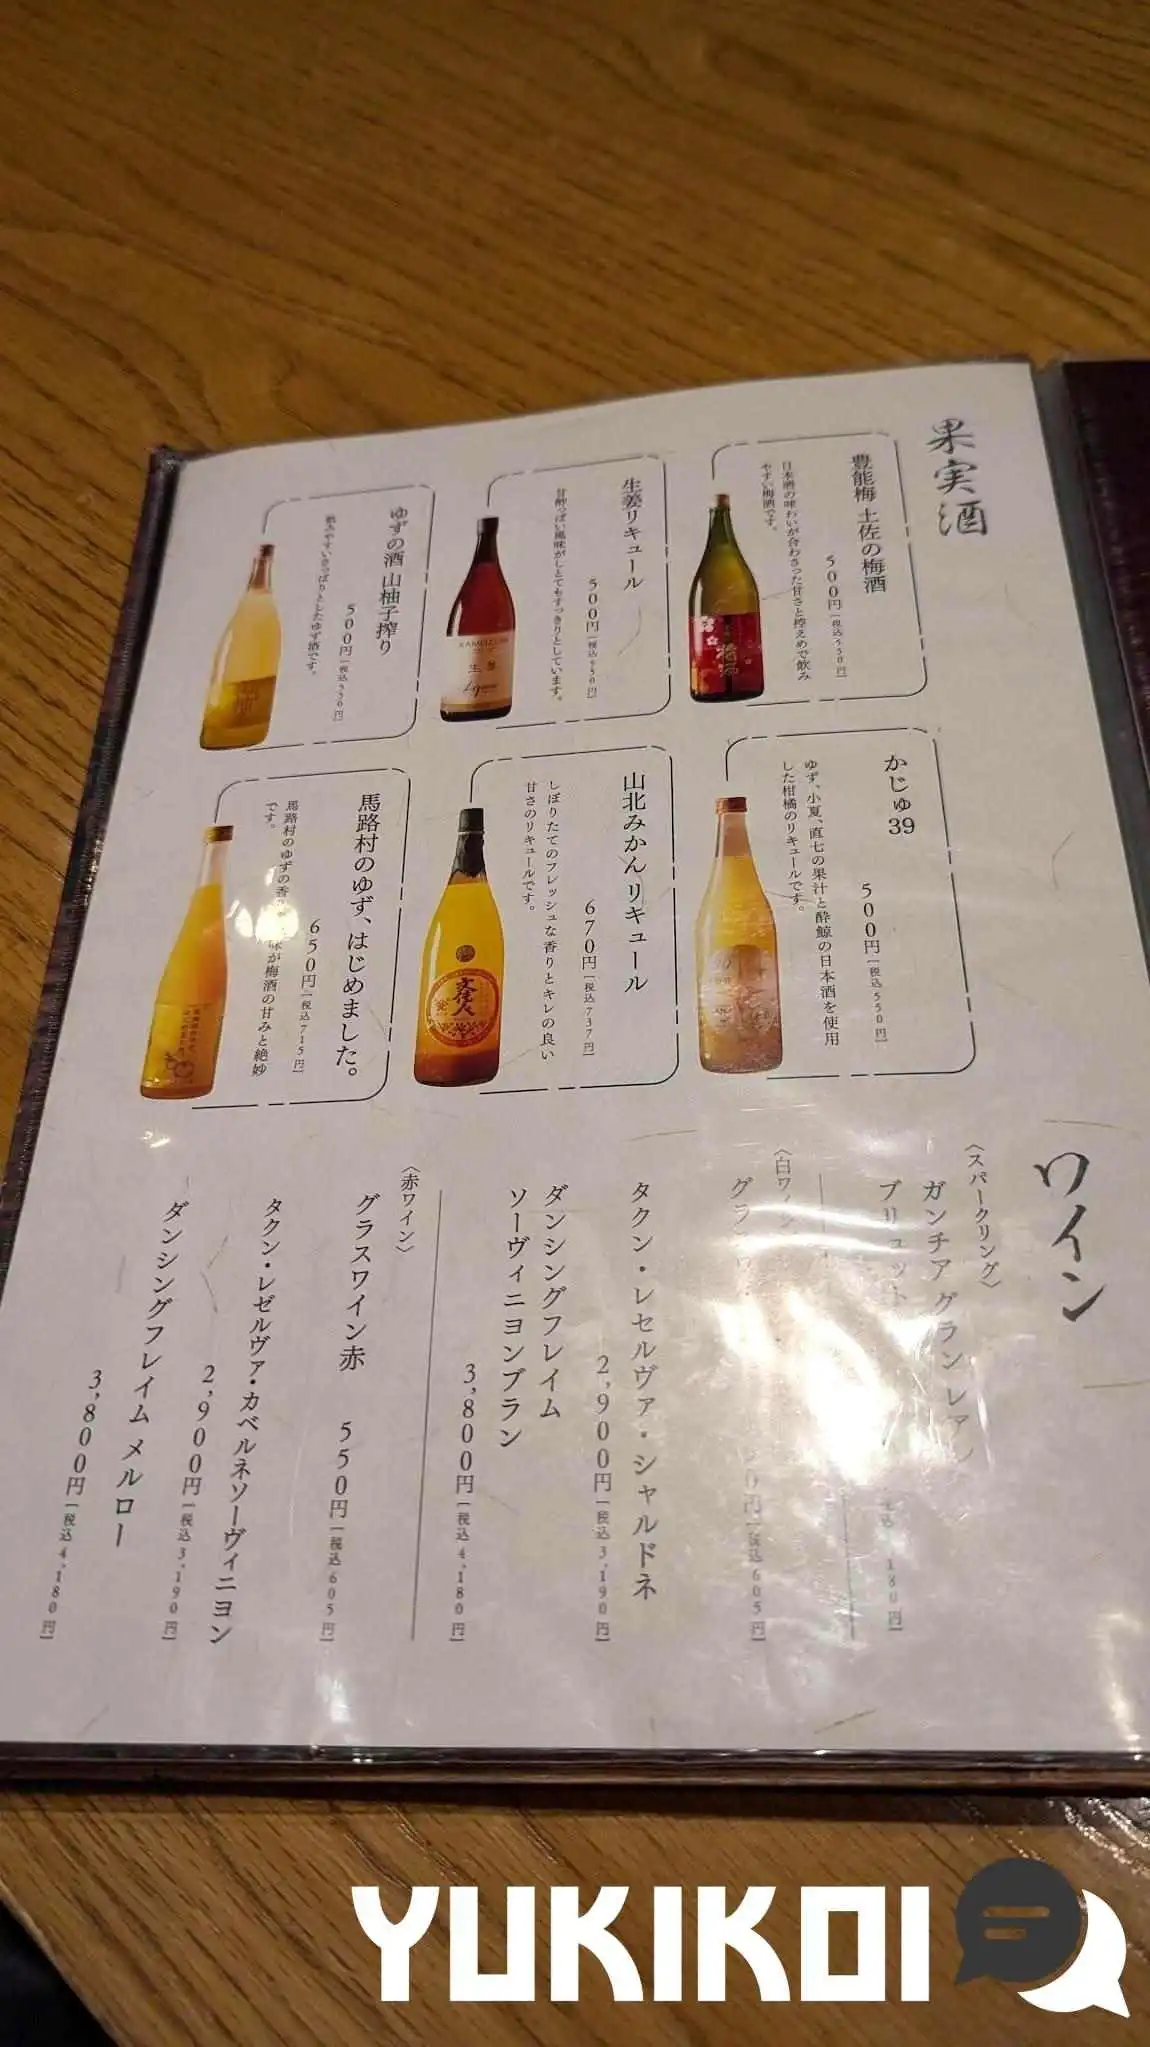 果実酒
豊能梅 土佐の梅酒
500円[税込550円]
日本酒の味わいが合わさった甘さと控えめで飲み
やすい梅酒です。
生姜リキュール
500円[税込550円]
甘酸っぱい風味がとてもすっきりとしています。
生姜
ゆずの酒 山柚子搾り
500円[税込550円]
飲みやすいさっぱりとしたゆず酒です。
かじゅ39
500円[税込550円]
ゆず、小夏、直七の果汁と酔鯨の日本酒を使用
した柑橘のリキュールです。
山北みかんリキュール
670円[税込737円]
しぼりたてのフレッシュな香りとキレの良い
甘さのリキュールです。
文佳人
馬路村のゆず、はじめました。
650円[税込715円]
馬路村のゆずの香 味が梅酒の甘みと絶妙
です。
ワイン
〈スパークリング〉
ガンチア グラン レアー
ブリュット
180円]
〈白ワイン
グラス
0円[税込605円]
タクン・レセルヴァ・シャルドネ
2,900円[税込3,190円]
ダンシングフレイム
ソーヴィニヨンブラン
3,800円[税込4,180円]
〈赤ワイン〉
グラスワイン赤
550円[税込605円]
タクン・レゼルヴァ・カベルネソーヴィニヨン
2,900円[税込3,190円]
ダンシングフレイム メルロー
3,800円[税込4,180円]
YUKIKOI